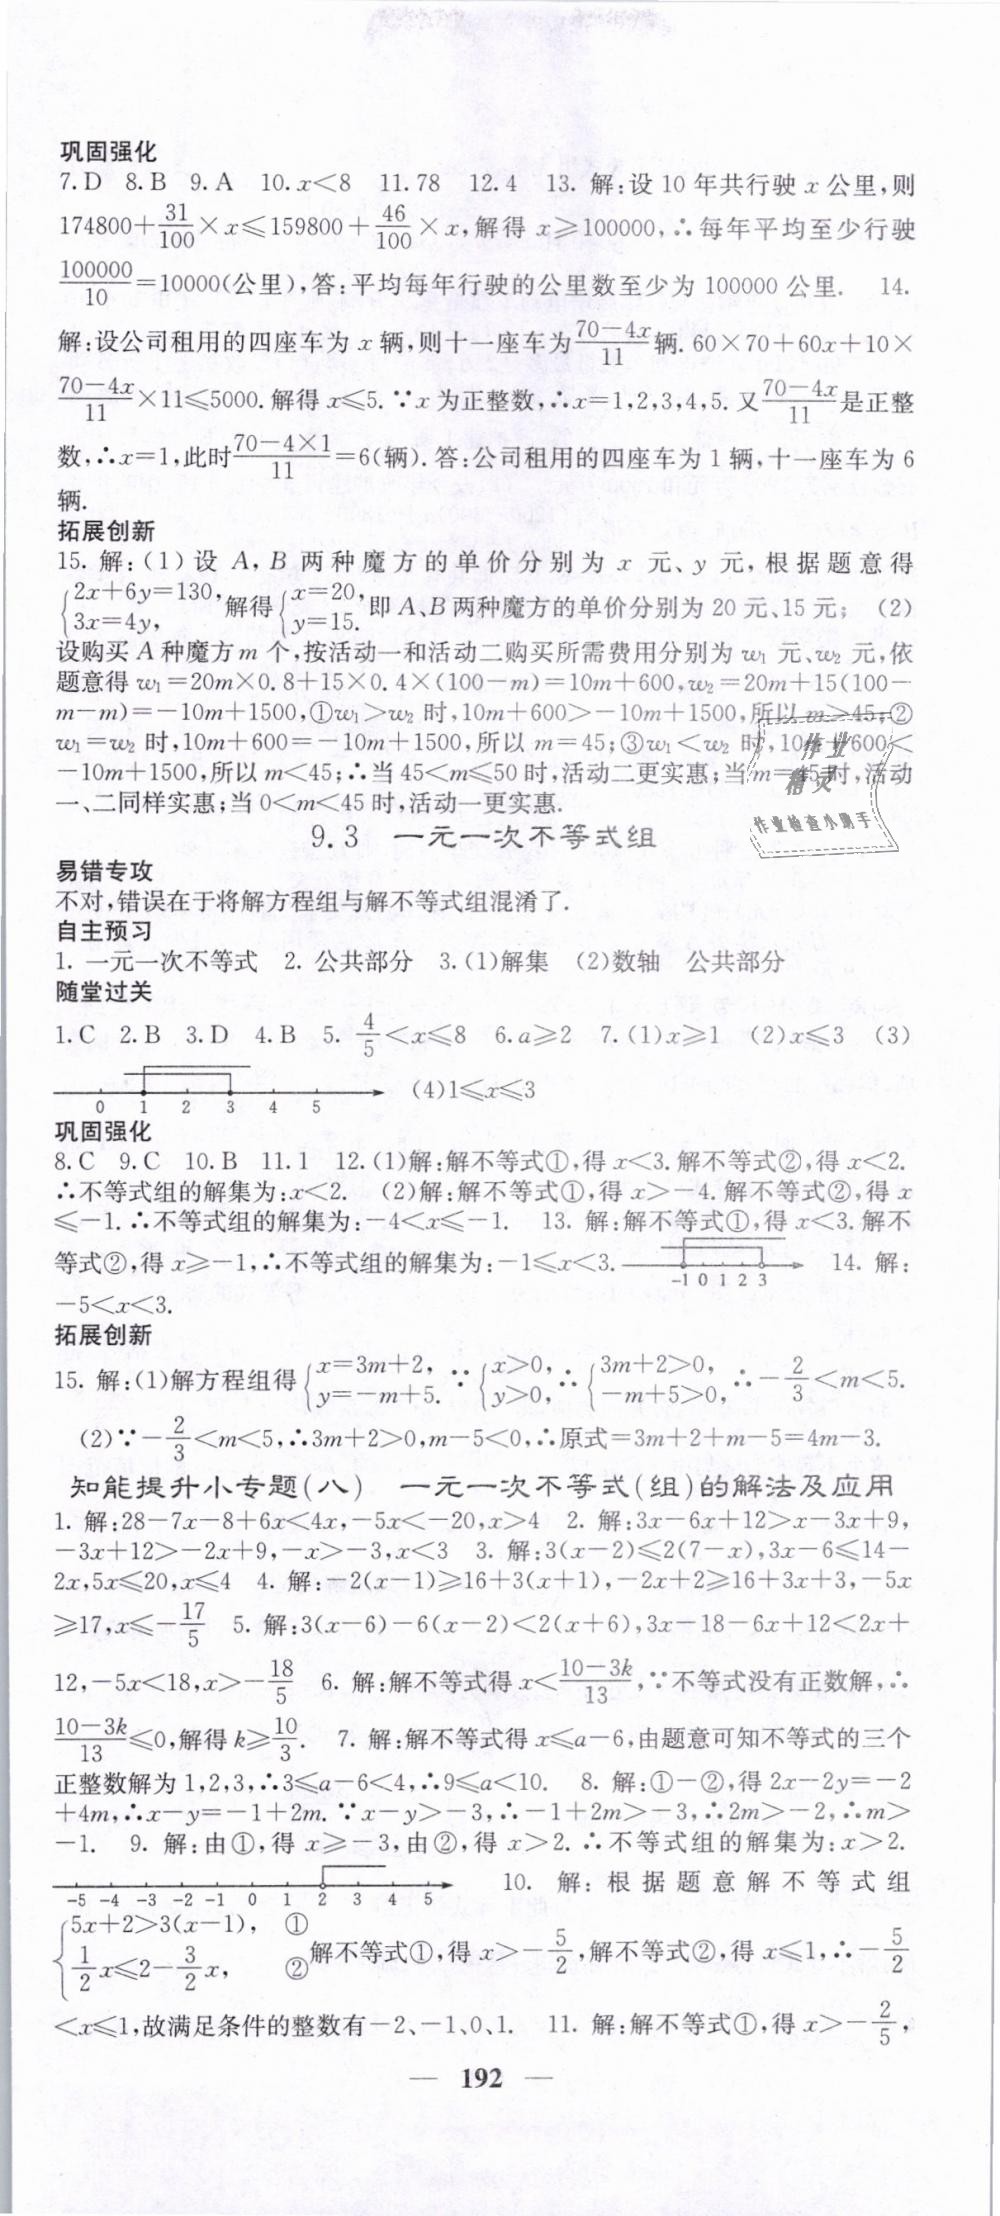 巩固强化
7.D 8.B 9.A 10.x<8 11.78 12.4 13. 解:设 10 年共行驶 x 公里,则
174800+31/100×x≤159800+46/100×x,解得 x≥100000,∴每年平均至少行驶
100000/10=10000(公里),答:平均每年行驶的公里数至少为 100000 公里. 14.
解:设公司租用的四座车为 x 辆,则十一座车为(70-4x)/11辆. 60×70+60x+10×
(70-4x)/11×11≤5000. 解得 x≤5. ∵x 为正整数,∴x=1,2,3,4,5. 又(70-4x)/11是正整
数,∴x=1,此时(70-4×1)/11=6(辆). 答:公司租用的四座车为 1 辆,十一座车为 6
辆.
拓展创新
15. 解:(1)设 A,B 两种魔方的单价分别为 x 元、y 元,根据题意得
{2x+6y=130, 3x=4y, 解得{x=20, y=15. 即 A、B 两种魔方的单价分别为 20 元、15 元; (2)
设购买 A 种魔方 m 个,按活动一和活动二购买所需费用分别为 w₁ 元、w₂ 元,依
题意得 w₁=20m×0.8+15×0.4×(100-m)=10m+600,w₂=20m+15(100-
m-m)=-10m+1500,①w₁>w₂ 时,10m+600>-10m+1500,所以 m>45;②
w₁=w₂ 时,10m+600=-10m+1500,所以 m=45;③w₁<w₂ 时,10m+600<
-10m+1500,所以 m<45;∴当 45<m≤50 时,活动二更实惠;当 m=45 时,活动
一、二同样实惠;当 0<m<45 时,活动一更实惠.
作业
精灵
作业检查小助手
9.3 一元一次不等式组
易错专攻
不对,错误在于将解方程组与解不等式组混淆了.
自主预习
1. 一元一次不等式 2. 公共部分 3.(1)解集 (2)数轴 公共部分
随堂过关
1.C 2.B 3.D 4.B 5. 4/5<x≤8 6.a≥2 7.(1)x≥1 (2)x≤3 (3)
0 1 2 3 4 5 (4)1≤x≤3
巩固强化
8.C 9.C 10.B 11.1 12.(1)解:解不等式①,得 x<3. 解不等式②,得 x<2.
∴不等式组的解集为:x<2. (2)解:解不等式①,得 x>-4. 解不等式②,得 x
≤-1. ∴不等式组的解集为:-4<x≤-1. 13. 解:解不等式①,得 x<3. 解不
等式②,得 x≥-1,∴不等式组的解集为:-1≤x<3. -1 0 1 2 3 14. 解:
-5<x<3.
拓展创新
15. 解:(1)解方程组得{x=3m+2, y=-m+5. ∵{x>0, y>0, ∴{3m+2>0, -m+5>0, ∴-2/3<m<5.
(2)∵-2/3<m<5,∴3m+2>0,m-5<0,∴原式=3m+2+m-5=4m-3.
知能提升小专题(八) 一元一次不等式(组)的解法及应用
1. 解:28-7x-8+6x<4x,-5x<-20,x>4 2. 解:3x-6x+12>x-3x+9,
-3x+12>-2x+9,-x>-3,x<3 3. 解:3(x-2)≤2(7-x),3x-6≤14-
2x,5x≤20,x≤4 4. 解:-2(x-1)≥16+3(x+1),-2x+2≥16+3x+3,-5x
≥17,x≤-17/5 5. 解:3(x-6)-6(x-2)<2(x+6),3x-18-6x+12<2x+
12,-5x<18,x>-18/5 6. 解:解不等式得 x<(10-3k)/13,∵不等式没有正数解,∴
(10-3k)/13≤0,解得 k≥10/3. 7. 解:解不等式得 x≤a-6,由题意可知不等式的三个
正整数解为 1,2,3,∴3≤a-6<4,∴9≤a<10. 8. 解:①-②,得 2x-2y=-2
+4m,∴x-y=-1+2m. ∵x-y>-3,∴-1+2m>-3,∴2m>-2,∴m>
-1. 9. 解:由①,得 x≥-3,由②,得 x>2. ∴不等式组的解集为:x>2.
-5 -4 -3 -2 -1 0 1 2 3 4 5 10. 解:根据题意解不等式组
{5x+2>3(x-1), ① 1/2x≤2-3/2x, ② 解不等式①,得 x>-5/2,解不等式②,得 x≤1,∴-5/2
<x≤1,故满足条件的整数有-2、-1、0、1. 11. 解:解不等式①,得 x>-2/5,
— 192 —